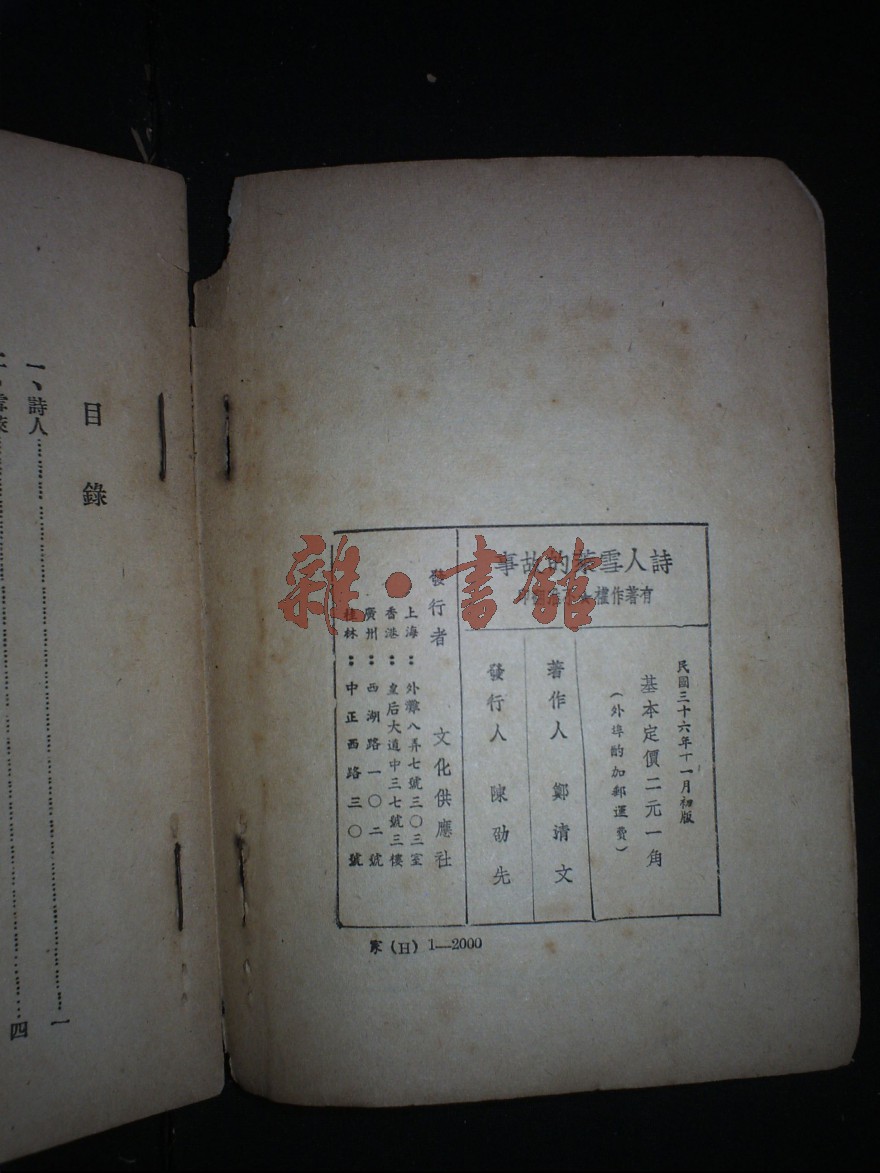 詩人雪萊的故事
有著作權
民國三十六年十一月初版
基本定價二元一角
(外埠酌加郵運費)
著作人 鄭清文
發行人 陳劭先
發行者 文化供應社
上海：外灘八弄七號三〇三室
香港：皇后大道中三七號三樓
廣州：西湖路一〇二號
桂林：中正西路三〇號
家(日) 1—2000
目錄
一、詩人……一
四
雜·書館